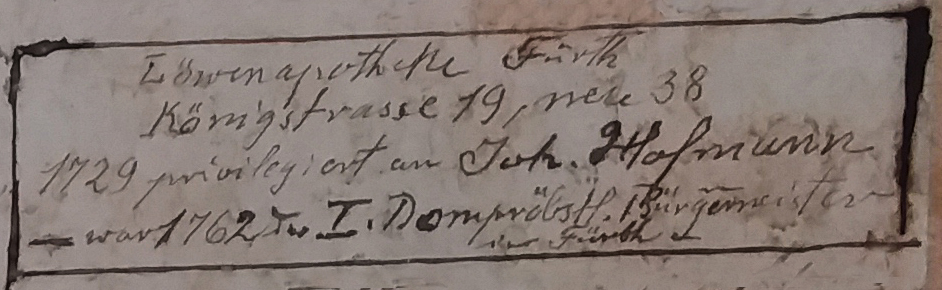 Löwenapotheke Fürth
Königstrasse 19, neu 38
1729 privilegiert an Joh. Hofmann
— war 1762 der I. Dompröbstl. Bürgermeister
in Fürth —